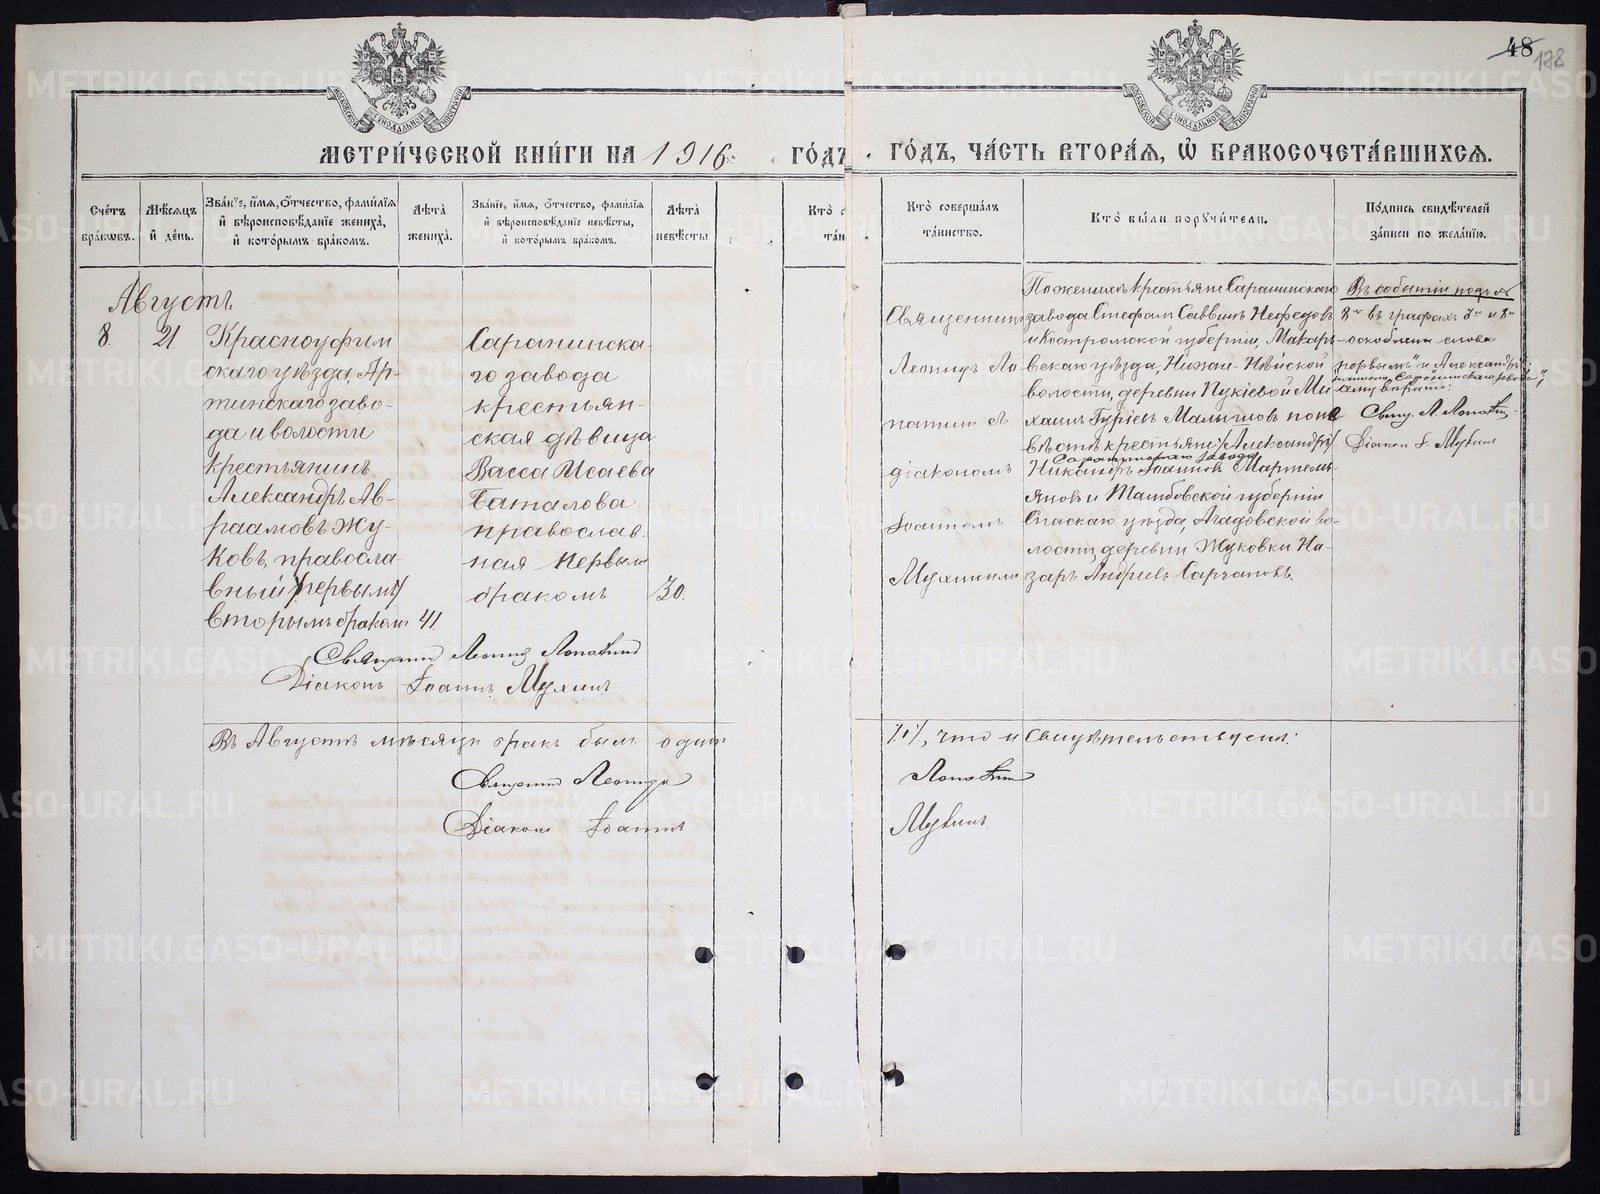 48
178
МЕТРИ́ЧЕСКОЙ КНИ́ГИ НА 1916 ГО́ДЪ
ГО́ДЪ, ЧА́СТЬ ВТОРА́Я, Ѡ БРАКОСОЧЕТА́ВШИХСЯ.
Сче́тъ бра́ковъ.
Мѣ́сяцъ и де́нь.
Зва́нїе, и́мя, о́тчество, фами́лїя и вѣроисповѣ́данїе жениха́, и кото́рымъ бра́комъ.
Лѣ́та жениха́.
Зва́нїе, и́мя, о́тчество, фами́лїя и вѣроисповѣ́данїе невѣ́сты, и кото́рымъ бра́комъ.
Лѣ́та невѣ́сты.
Кто̀ соверша́лъ та́инство.
Кто̀ бы́ли поручи́тели.
По́дпись свидѣ́телей за́писи по жела́нїю.
Августъ.
8
21
Красноуфим
скаго уѣзда, Ар-
тинскаго заво-
да и волости
крестьянинъ
Александръ Ав-
раамовъ Жу-
ковъ, правосла-
вный /первымъ/
вторымъ бракомъ 41
Саранинска-
го завода
крестьян-
ская дѣвица
Васса Исаева
Баталова
православ.
ная первым
бракомъ 30.
Священникъ
Леонидъ Ло
патинъ съ
діакономъ
Іоанномъ
Мухинымъ
По женихѣ: крестьяне Саранинскаго
завода Стефанъ Саввинъ Нефедовъ
и Костромской губерніи, Макарь-
вскаго уѣзда, Нижне-Нѣйской
волости, деревни Пукіевой Ми
хаилъ Гуріевъ Малышовъ по не
вѣстѣ крестьяне: /Александръ/
Саранинскаго завода
Никаноръ Іоанновъ Мартемь-
яновъ и Тамбовской губерніи
Спаскаго уѣзда, Агадовской во-
лости, деревни Жуковки На-
заръ Андреевъ Сарганов.
Въ событіи подъ №
8м въ графахъ 3й и 8й
оскоблены слова
первымъ" и Александръ
сему вѣрить:
Свящ. Л. Лопатин
Діакон І. Мухин.
Священникъ Леонидъ Лопатинъ
Діаконъ Іоаннъ Мухинъ
Въ Августѣ мѣсяцѣ бракъ былъ один
/1/, что и свидѣтельствуемъ:
Священникъ Леонидъ Лопатинъ
Діаконъ Іоаннъ Мухинъ.
METRIKI.GASO-URAL.RU